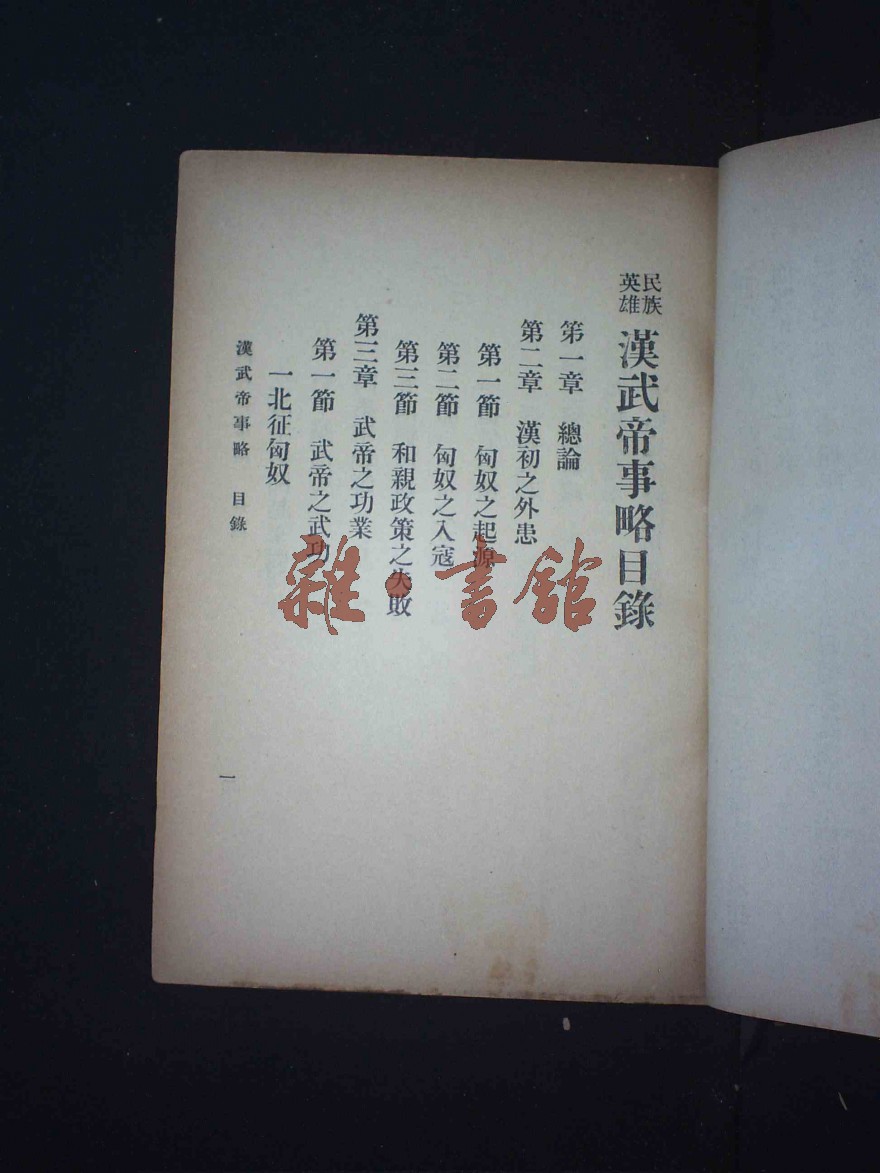 民族英雄 漢武帝事略目錄
第一章 總論
第二章 漢初之外患
第一節 匈奴之起源
第二節 匈奴之入寇
第三節 和親政策之失敗
第三章 武帝之功業
第一節 武帝之武功
一北征匈奴
漢武帝事略 目錄
一
雜·書館